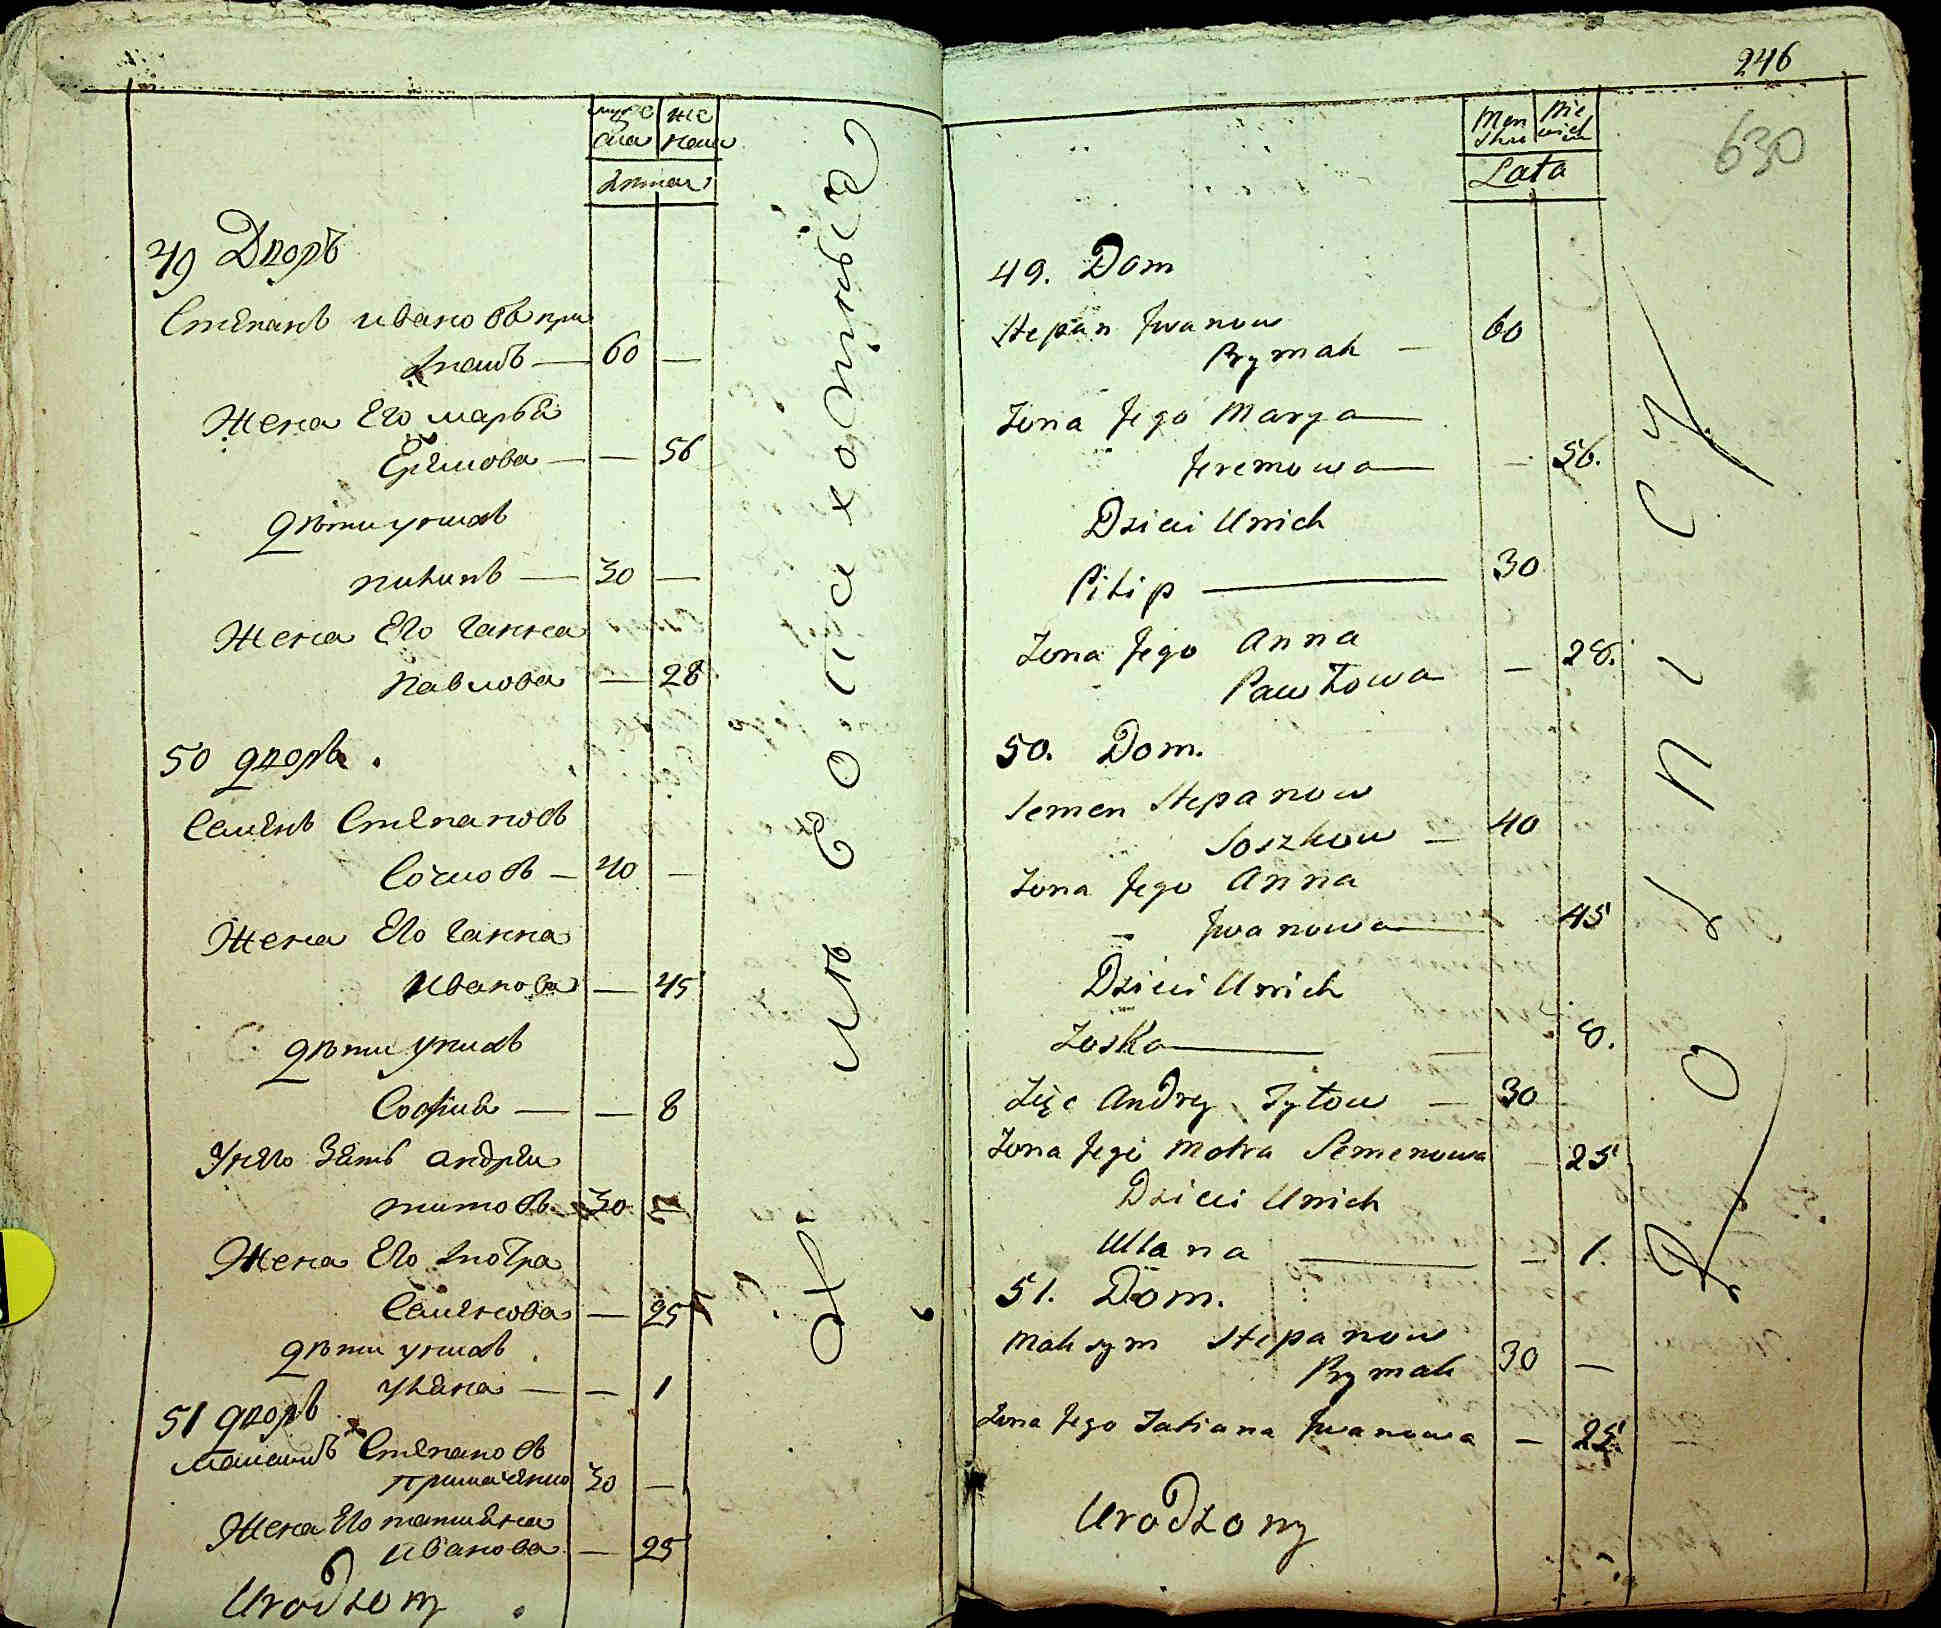 49 Дворъ
Степанъ Ивановъ при
60 —
Жена Его марья
Еремова — — 56
дѣти у нихъ
пилипъ — 30 —
Жена Его ганна
павлова — 28
50 дворъ.
Семенъ Степановъ
40 —
Жена Его ганна
Иванова — 45
дѣти у нихъ
София — — 8
У него Зять андреи
титовъ 30 —
Жена Его мотра
Семенова — 25
дѣти у нихъ
уляна — — 1
51 дворъ
Степановъ
30 —
Жена Его татияна
Иванова — 25
Urodzony
246
630
Men skie Nie wieś
Lata
49. Dom
Stepan Jwanow
Prymak — 60
Żona Jego Marya
Jeremowa — 56.
Dzieci U nich
Pilip — 30
Żona Jego Anna
Pawłowa — 28.
50. Dom.
Semen Stepanow
Soszkow — 40
Żona Jego Anna
Jwanowa 45
Dzieci U nich
Zoska — 8.
Zięc Andrey Tytow — 30
Żona Jego Motra Semenowa — 25
Dzieci U nich
Ulana — 1.
51. Dom.
Maksym Stepanow
Prymak 30 —
Żona Jego Tatiana Jwanowa — 25.
Urodzony